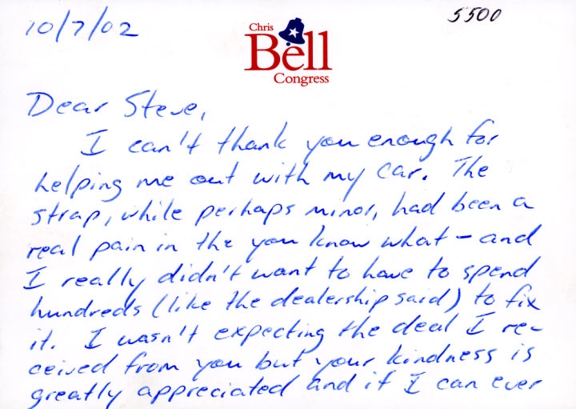 10/7/02
5500
Chris
Bell
Congress
Dear Steve,
I can't thank you enough for
helping me out with my car. The
strap, while perhaps minor, had been a
real pain in the you know what - and
I really didn't want to have to spend
hundreds (like the dealership said) to fix
it. I wasn't expecting the deal I re-
ceived from you but your kindness is
greatly appreciated and if I can ever